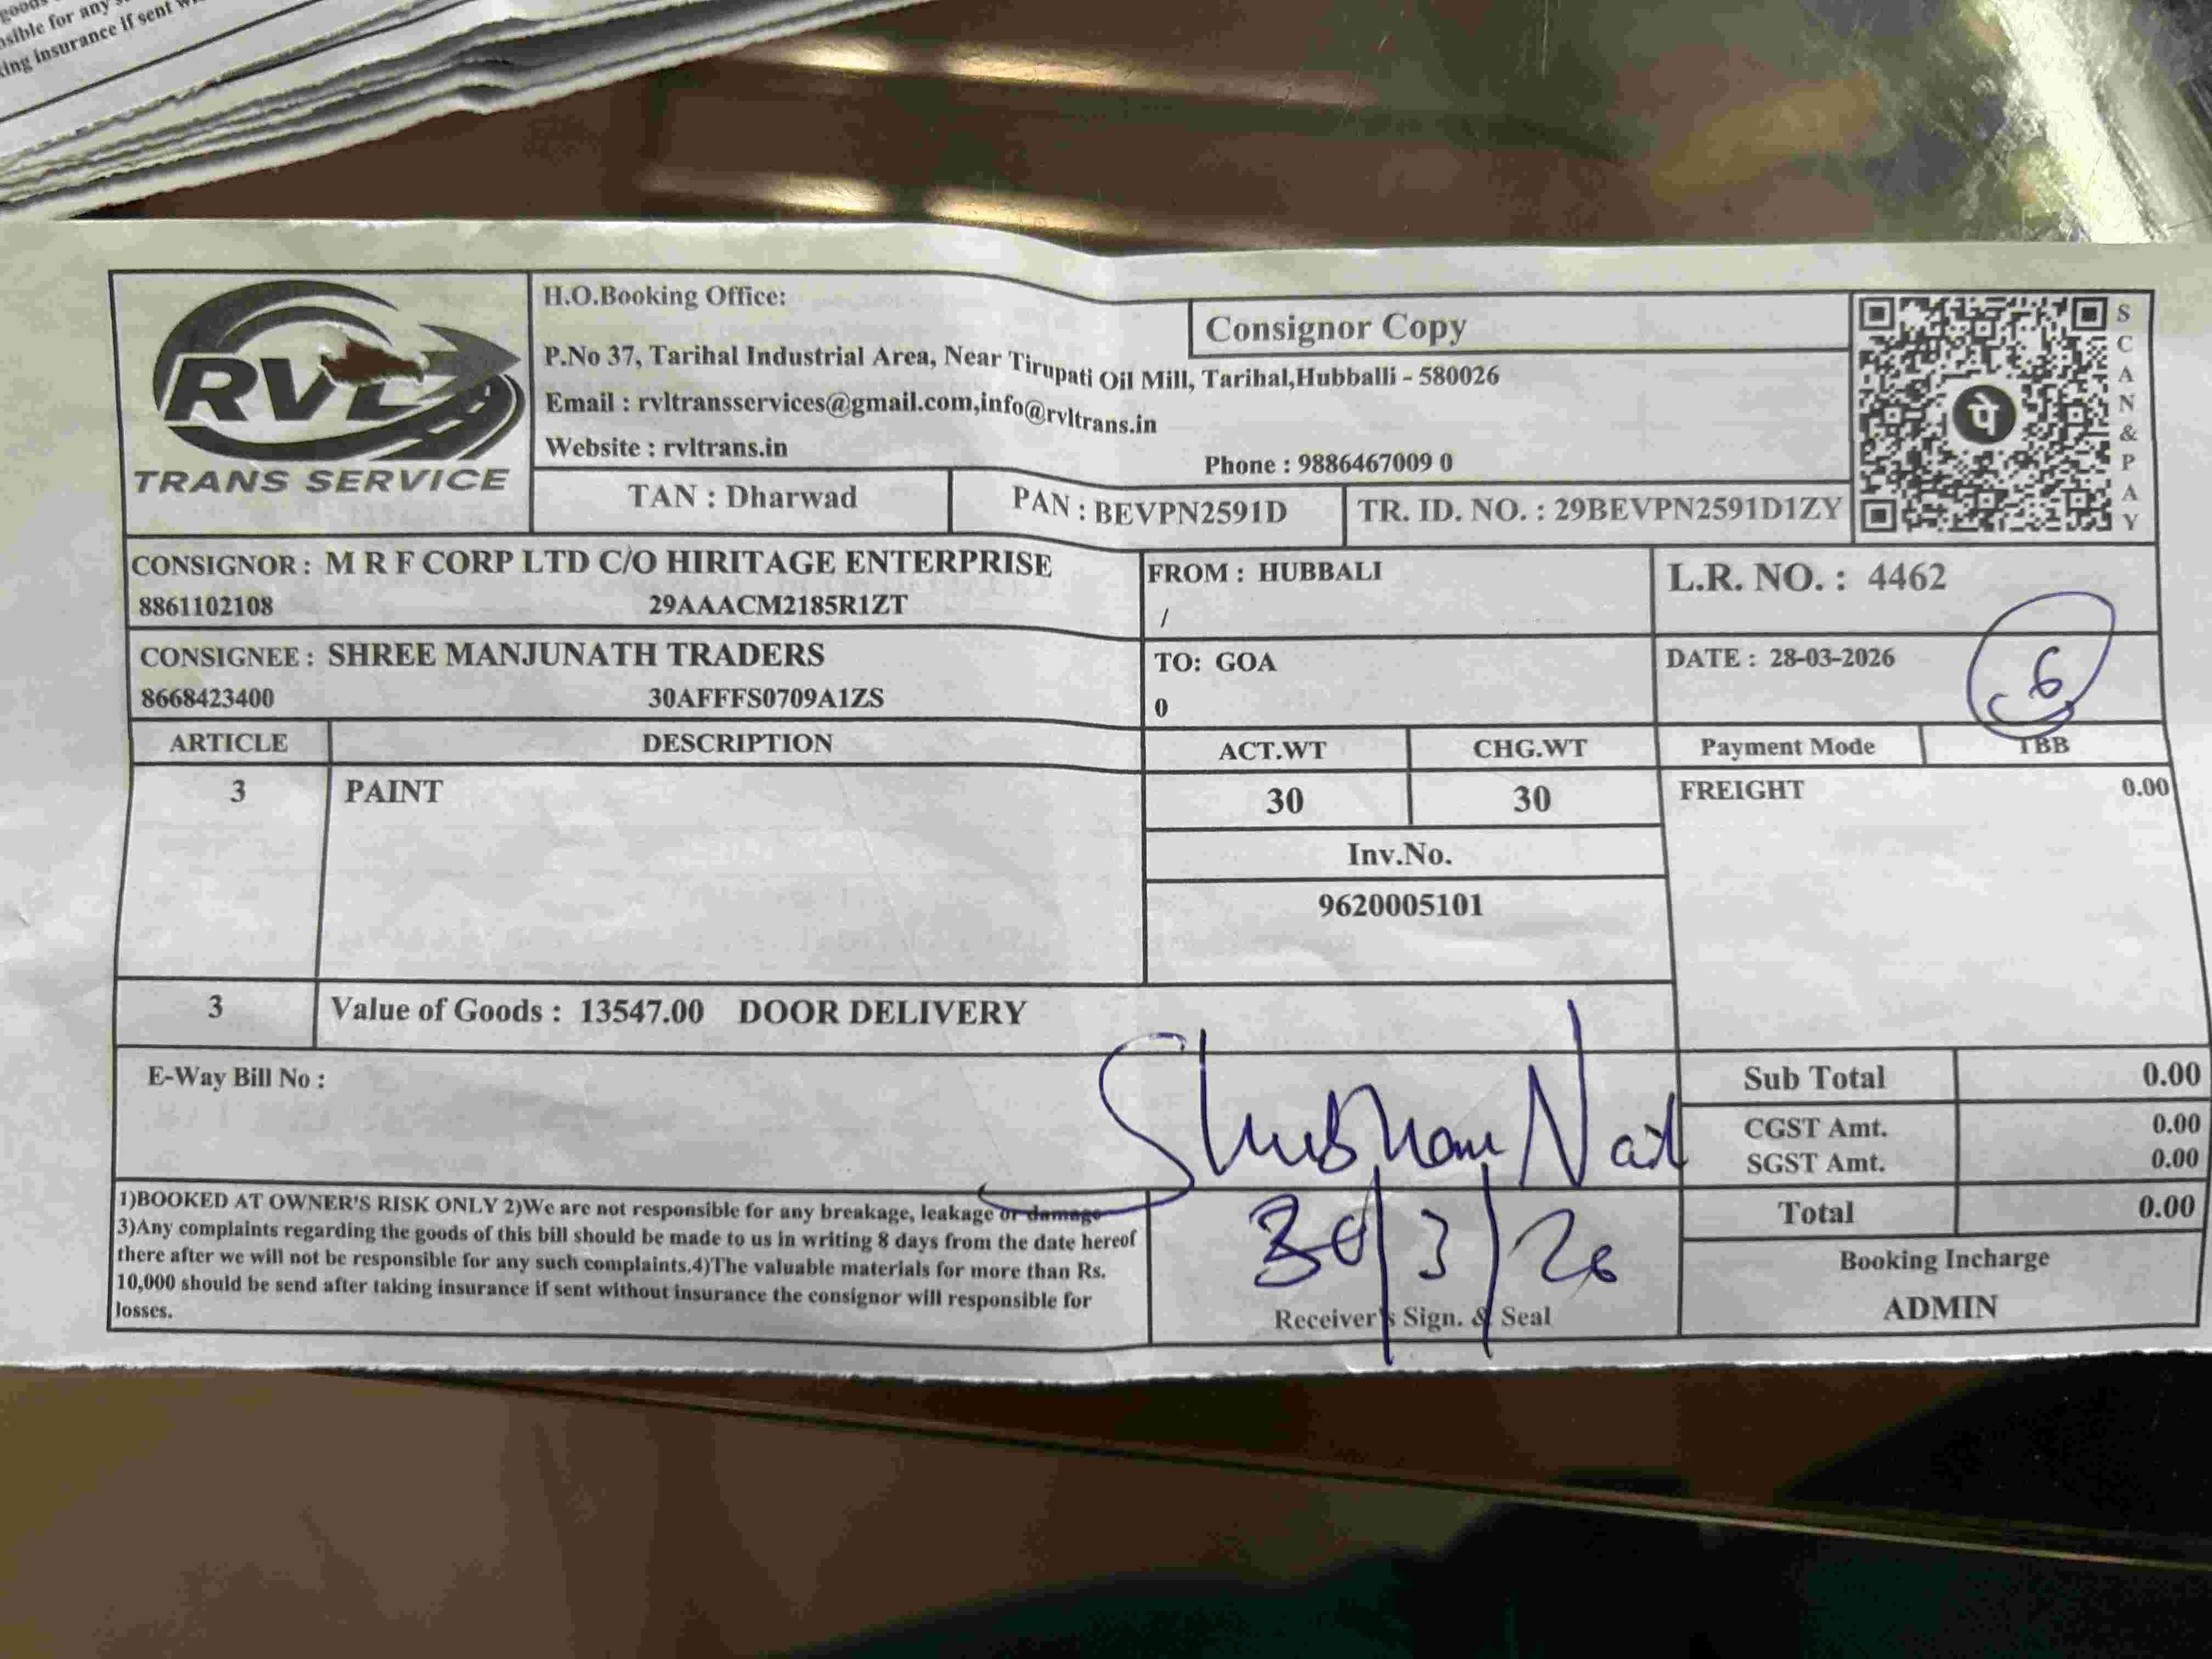 goods
nsible for any
king insurance if sent
RVL
TRANS SERVICE
H.O.Booking Office:
Consignor Copy
P.No 37, Tarihal Industrial Area, Near Tirupati Oil Mill, Tarihal,Hubballi - 580026
Email : rvltransservices@gmail.com,info@rvltrans.in
Website : rvltrans.in
Phone : 9886467009 0
TAN : Dharwad
PAN : BEVPN2591D
TR. ID. NO. : 29BEVPN2591D1ZY
पे
SCAN&PAY
CONSIGNOR : M R F CORP LTD C/O HIRITAGE ENTERPRISE
8861102108 29AAACM2185R1ZT
FROM : HUBBALI
/
L.R. NO. : 4462
CONSIGNEE : SHREE MANJUNATH TRADERS
8668423400 30AFFFS0709A1ZS
TO: GOA
0
DATE : 28-03-2026
6
ARTICLE DESCRIPTION ACT.WT CHG.WT Payment Mode TBB
3 PAINT 30 30 FREIGHT 0.00
Inv.No.
9620005101
3 Value of Goods : 13547.00 DOOR DELIVERY
E-Way Bill No :
Shubham Naik
30/3/26
Sub Total 0.00
CGST Amt. 0.00
SGST Amt. 0.00
Total 0.00
1)BOOKED AT OWNER'S RISK ONLY 2)We are not responsible for any breakage, leakage or damage
3)Any complaints regarding the goods of this bill should be made to us in writing 8 days from the date hereof
there after we will not be responsible for any such complaints.4)The valuable materials for more than Rs.
10,000 should be send after taking insurance if sent without insurance the consignor will responsible for
losses.
Receiver's Sign. & Seal
Booking Incharge
ADMIN